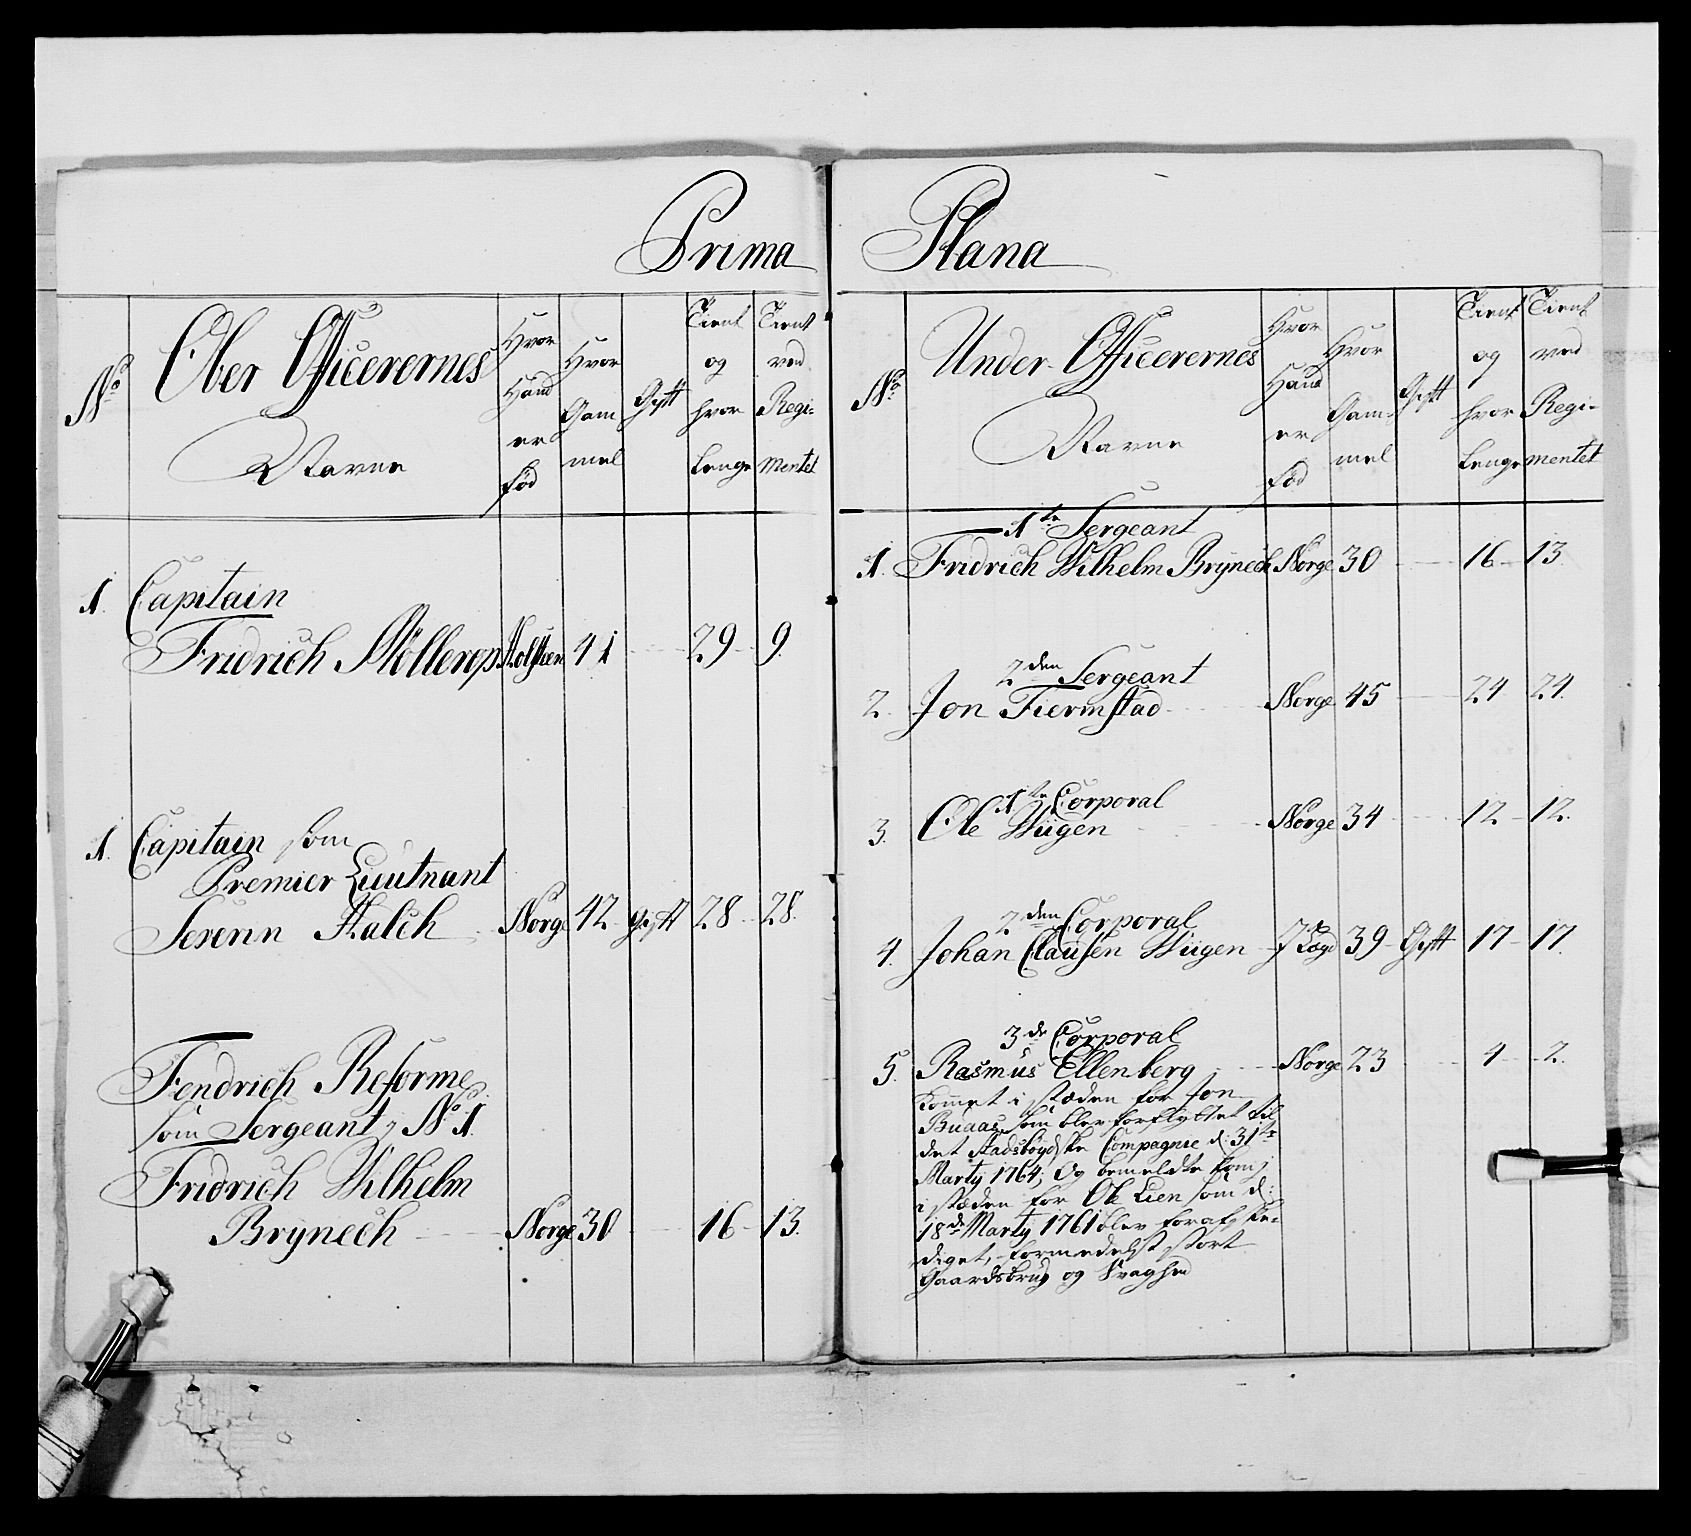 Prima Plana
No
Ober Officerernes
Navne
Hvor
Hand
er
fød
Hvor
Gam
mel
Gift
Tient
og
hvor
Lenge
Tient
ved
Regi-
mentet
1. Capitain
Fridrich Møllerop Holsteen 41 29 9.
1. Capitain som
Premier Lieutnant
Serenn Halck Norge 42 gift 28 28.
Fendrich Reforme
som Sergeant, No 1.
Fridrich Wilhelm
Brÿnech Norge 30 16 13.
No
Under Officerernes
Navne
Hvor
Hand
er
fød
Hvor
Gam-
mel
Gift
Tient
og
hvor
Lenge
Tient
ved
Regi-
mentet
1te Sergeant
1. Fridrich Wilhelm Brÿnech Norge 30 16 13.
2den Sergeant
2. Jon Fiermstad Norge 45 24 24.
1te Corporal
3. Ole Wiigen Norge 34 12 12.
2den Corporal
4. Johan Clausen Wiigen 39 Gift 17 17.
3de Corporal
5. Rasmus Ellenberg Norge 23 4 2.
Kommet i stæden for Jon
Buaas, som blev forflyttet til
det Stadsbøydske Compagnie d: 31te
Martÿ 1764, Og bemeldte kom
i stæden for Ole Lien som d:
18de Martÿ 1761 blev forafske-
diget, formedelst stort
Gaardsbrug og Svaghed